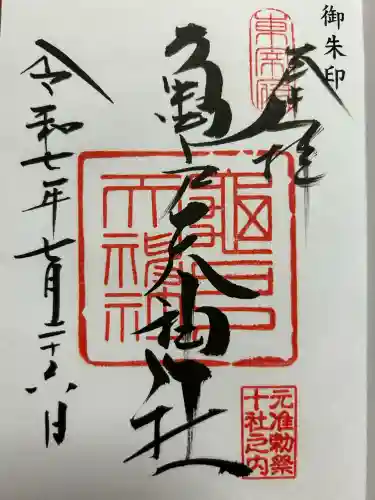 御朱印
奉拝
東宰府
亀戸天神社
亀戸天神社
元准勅祭
十社之内
令和七年七月二十六日